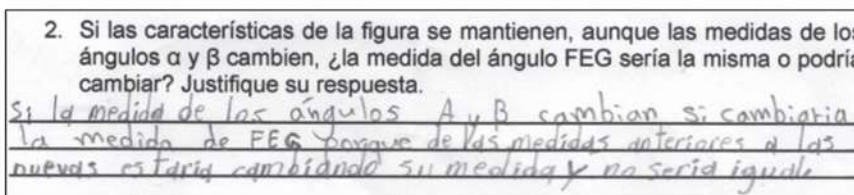 2. Si las características de la figura se mantienen, aunque las medidas de los
ángulos α y β cambien, ¿la medida del ángulo FEG sería la misma o podría
cambiar? Justifique su respuesta.
Si la medida de los ángulos A y B cambian si cambiaria
la medida de FEG porque de las medidas anteriores a las
nuevas estaria cambiando su medida y no seria igual.